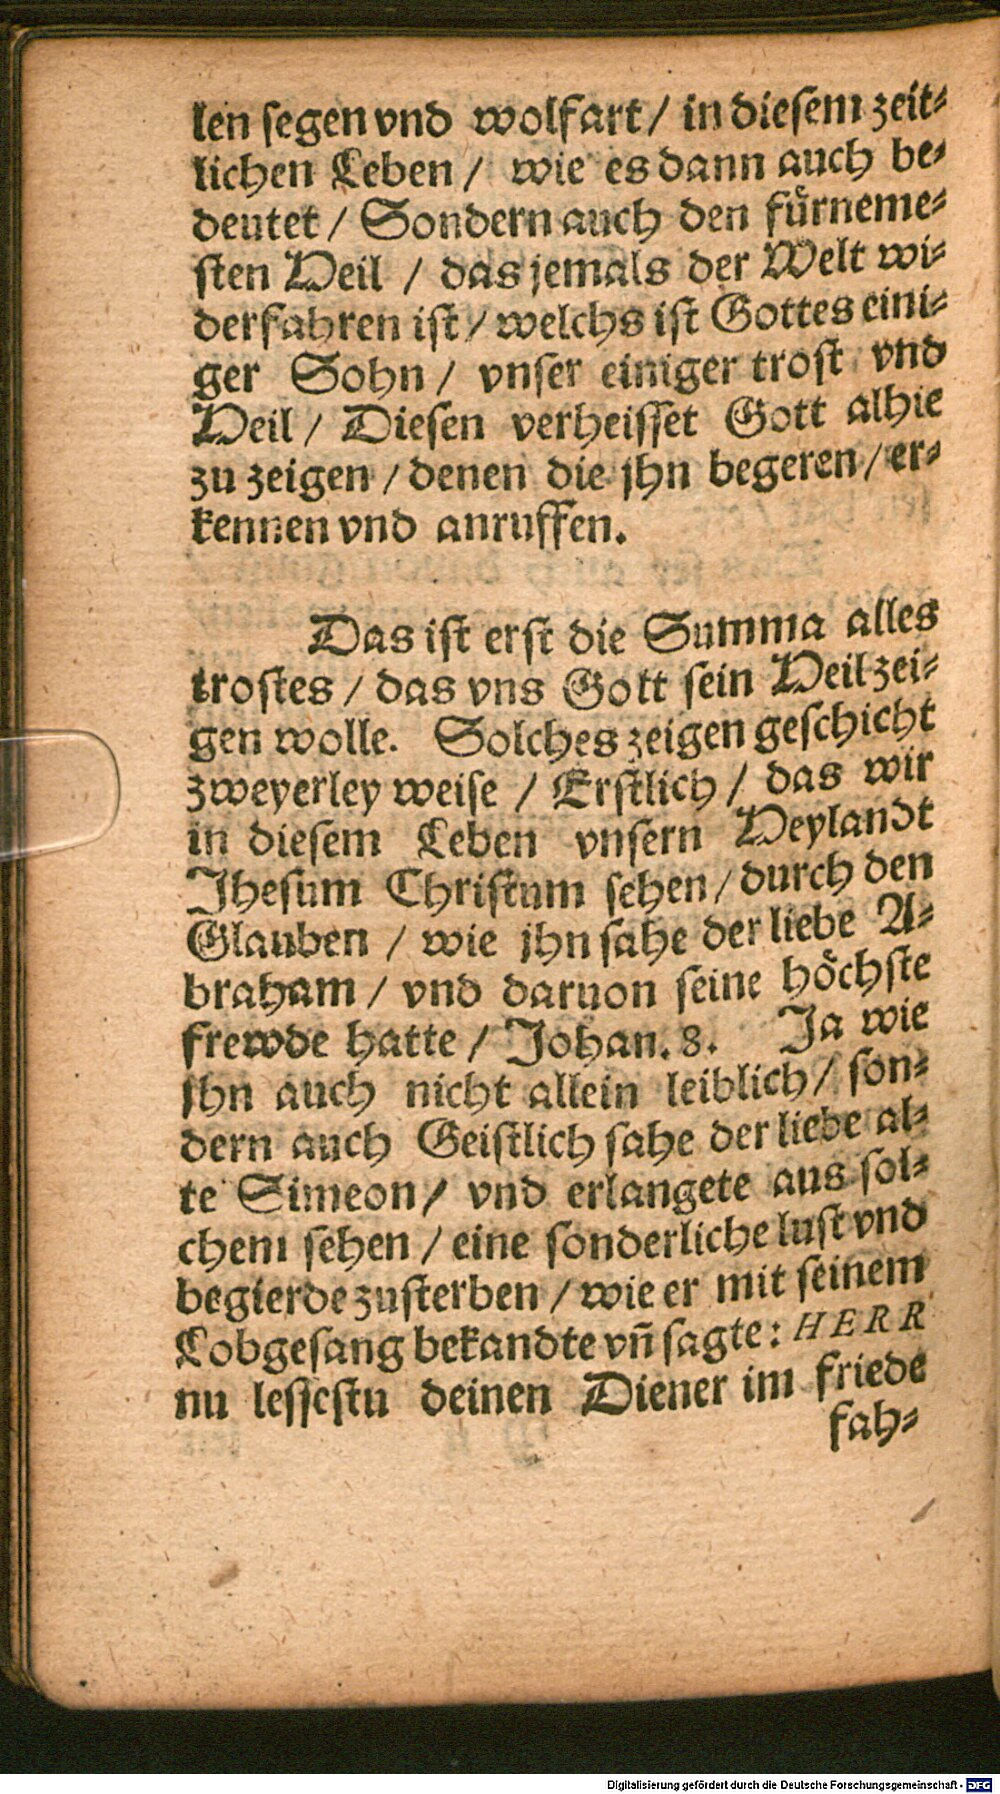 len segen vnd wolfart / in diesem zeit⸗
lichen Leben / wie es dann auch be⸗
deutet / Sondern auch den fürneme⸗
sten Heil / das jemals der Welt wi⸗
derfahren ist / welchs ist Gottes eini⸗
ger Sohn / vnser einiger trost vnd
Heil / Diesen verheisset Gott alhie
zu zeigen / denen die jhn begeren / er⸗
kennen vnd anruffen.
Das ist erst die Summa alles
trostes / das vns Gott sein Heil zei⸗
gen wolle. Solches zeigen geschicht
zweyerley weise / Erstlich / das wir
in diesem Leben vnsern Heylandt
Jhesum Christum sehen / durch den
Glauben / wie jhn sahe der liebe A⸗
braham / vnd daruon seine höchste
frewde hatte / Johan. 8. Ja wie
jhn auch nicht allein leiblich / son⸗
dern auch Geistlich sahe der liebe al⸗
te Simeon / vnd erlangete aus sol⸗
chem sehen / eine sonderliche lust vnd
begierde zusterben / wie er mit seinem
Lobgesang bekandte vñ sagte: HERR
nu lessestu deinen Diener im friede
fah⸗
Digitalisierung gefördert durch die Deutsche Forschungsgemeinschaft - DFG